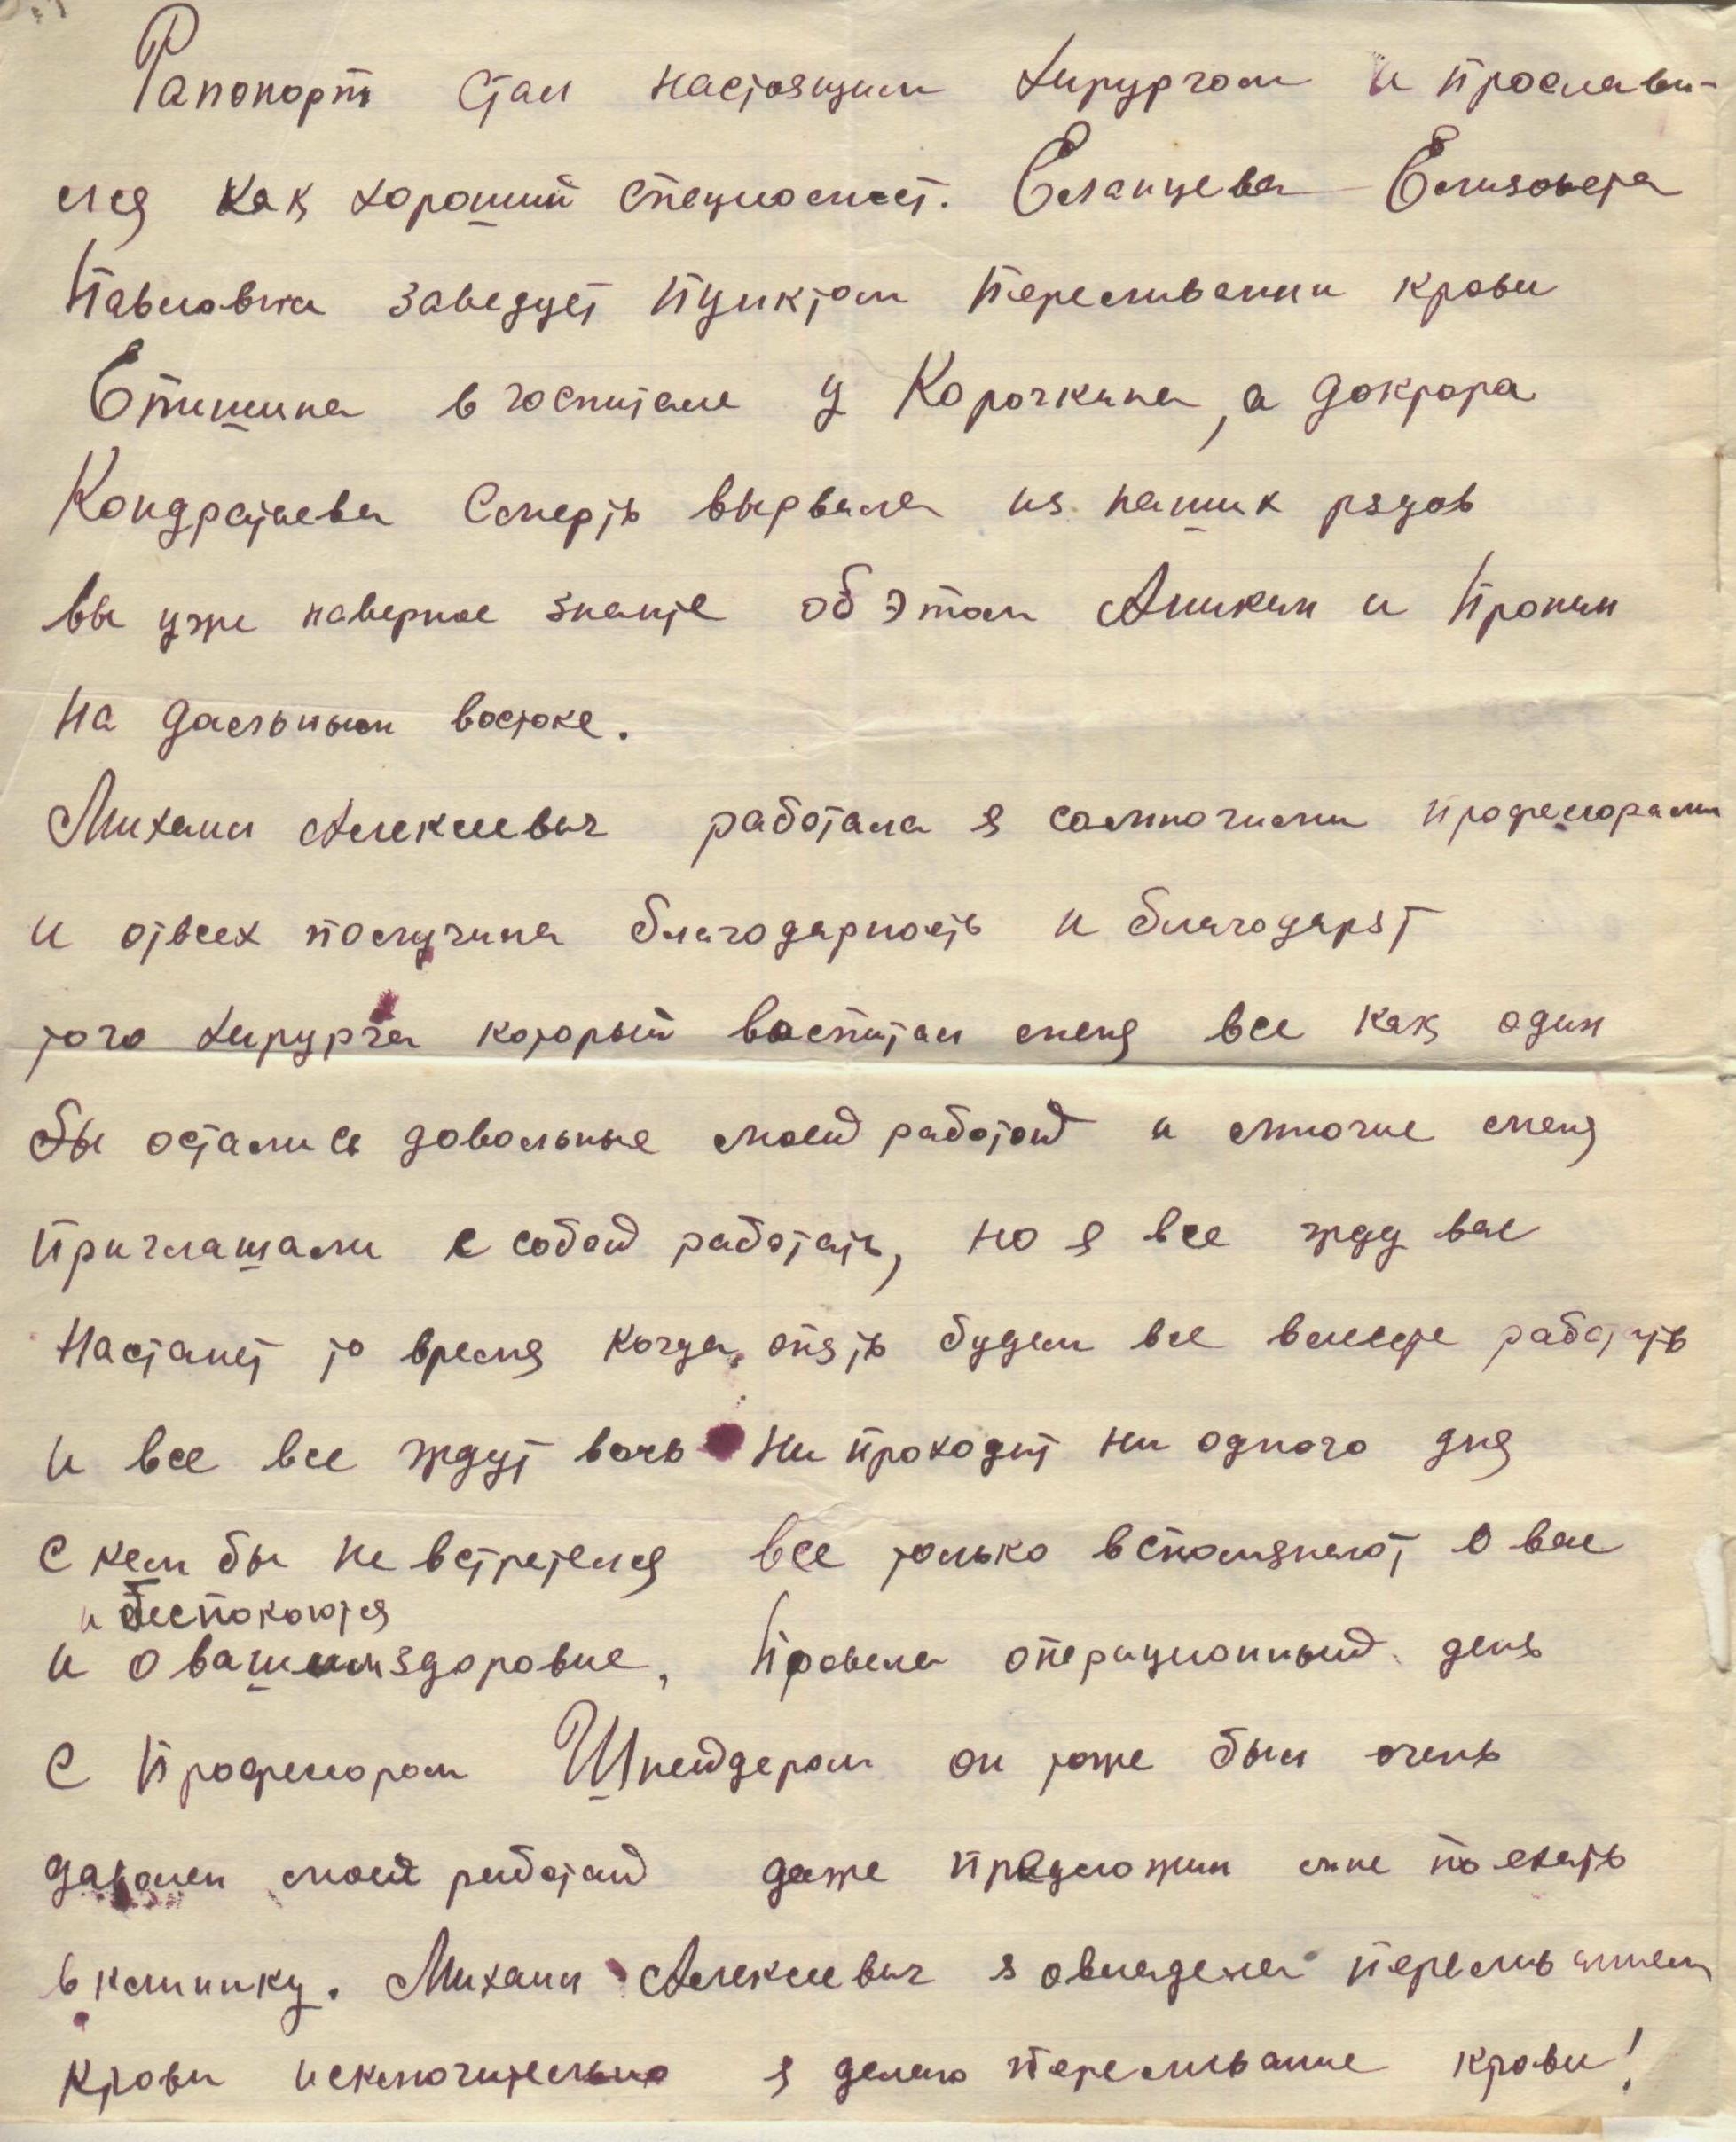 Рапопорт стал настоящим хирургом и прослави-
лся как хороший специалист. Еланцева Елизовета
Павловна заведует пунктом переливании крови
Етишина в госпитале у Корочкина, а доктора
Кондратьева смерть вырвала из наших рядов
вы уже наверное знаете об этом Аникин и Пронин
на дальным востоке.
Михаил Алексеевич работала я самногими професорами
и отвсех получила благодарность и благодарят
того хирурга который воспитал меня все как один
бы остались довольные моей работой и многие меня
приглашали с собой работать, но я все жду вас
Настанет то время когда опять будем все вместе работать
и все все ждут вась Ни проходит ни одного дня
с кем бы не встретелся все только вспомянают о вас
и беспокоются
и о вашим здоровие. Провела операционный день
с професором Шнейдером он тоже был очень
даволен моей работай даже предложил мне поехать
в клинику. Михаил Алексеевич я овладела переливанием
крови исключительно я делаю переливание крови!